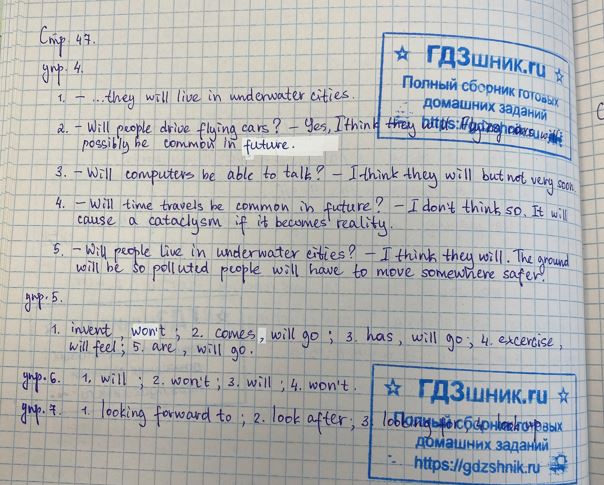 Стр. 47.
упр. 4.
1. – ...they will live in underwater cities.
2. – Will people drive flying cars? – Yes, I think they will
possibly be common in future.
3. – Will computers be able to talk? – I think they will but not very soon.
4. – Will time travels be common in future? – I don't think so. It will
cause a cataclysm if it becomes reality.
5. – Will people live in underwater cities? – I think they will. The ground
will be so polluted people will have to move somewhere safer.
упр. 5.
1. invent, won't; 2. comes, will go; 3. has, will go; 4. excercise,
will feel; 5. are, will go.
упр. 6. 1. will; 2. won't; 3. will; 4. won't.
упр. 7. 1. looking forward to; 2. look after; 3. looking for; 4. look up
ГДЗшник.ru
Полный сборник готовых
домашних заданий
https://gdzshnik.ru
ГДЗшник.ru
Полный сборник готовых
домашних заданий
https://gdzshnik.ru